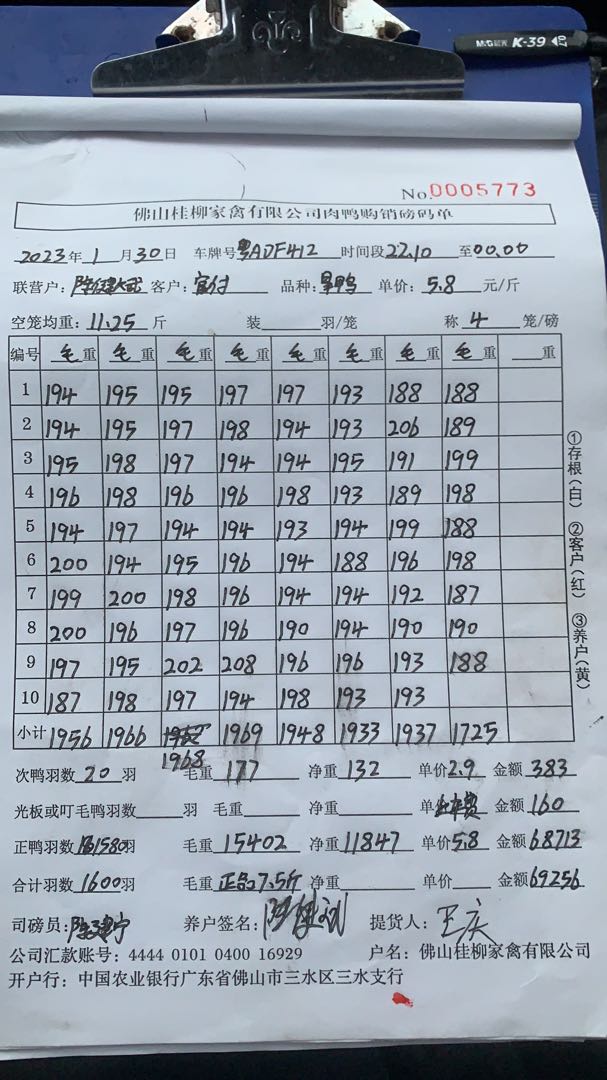 M&G K-39 0.7
No.0005773
佛山桂柳家禽有限公司肉鸭购销磅码单
2023年1月30日 车牌号粤ADF412 时间段22.10至00.00
联营户: 客户: 品种: 单价:5.8元/斤
空笼均重:11.25斤 装 羽/笼 称4笼/磅
编号 毛重 毛重 毛重 毛重 毛重 毛重 毛重 毛重 重
1 194 195 195 197 197 193 188 188
2 194 195 197 198 194 193 206 189
3 195 198 197 194 194 195 191 199
4 196 198 196 196 198 193 189 198
5 194 197 194 194 193 194 199 188
6 200 194 195 196 194 188 196 198
7 199 200 198 196 194 194 192 187
8 200 196 197 196 190 194 190 190
9 197 195 202 208 196 196 193 188
10 187 198 197 194 198 193 193
小计 1956 1966 1968 1969 1948 1933 1937 1725
①存根(白) ②客户(红) ③养户(黄)
次鸭羽数20羽 毛重177 净重132 单价2.9 金额383
光板或叮毛鸭羽数 羽 毛重 净重 单 金额160
正鸭羽数1580羽 毛重15402 净重11847 单价5.8 金额68713
合计羽数1600羽 毛重正品7.5斤 净重 单价 金额69256
司磅员: 养户签名: 提货人:王庆
公司汇款账号:4444 0101 0400 16929 户名:佛山桂柳家禽有限公司
开户行:中国农业银行广东省佛山市三水区三水支行